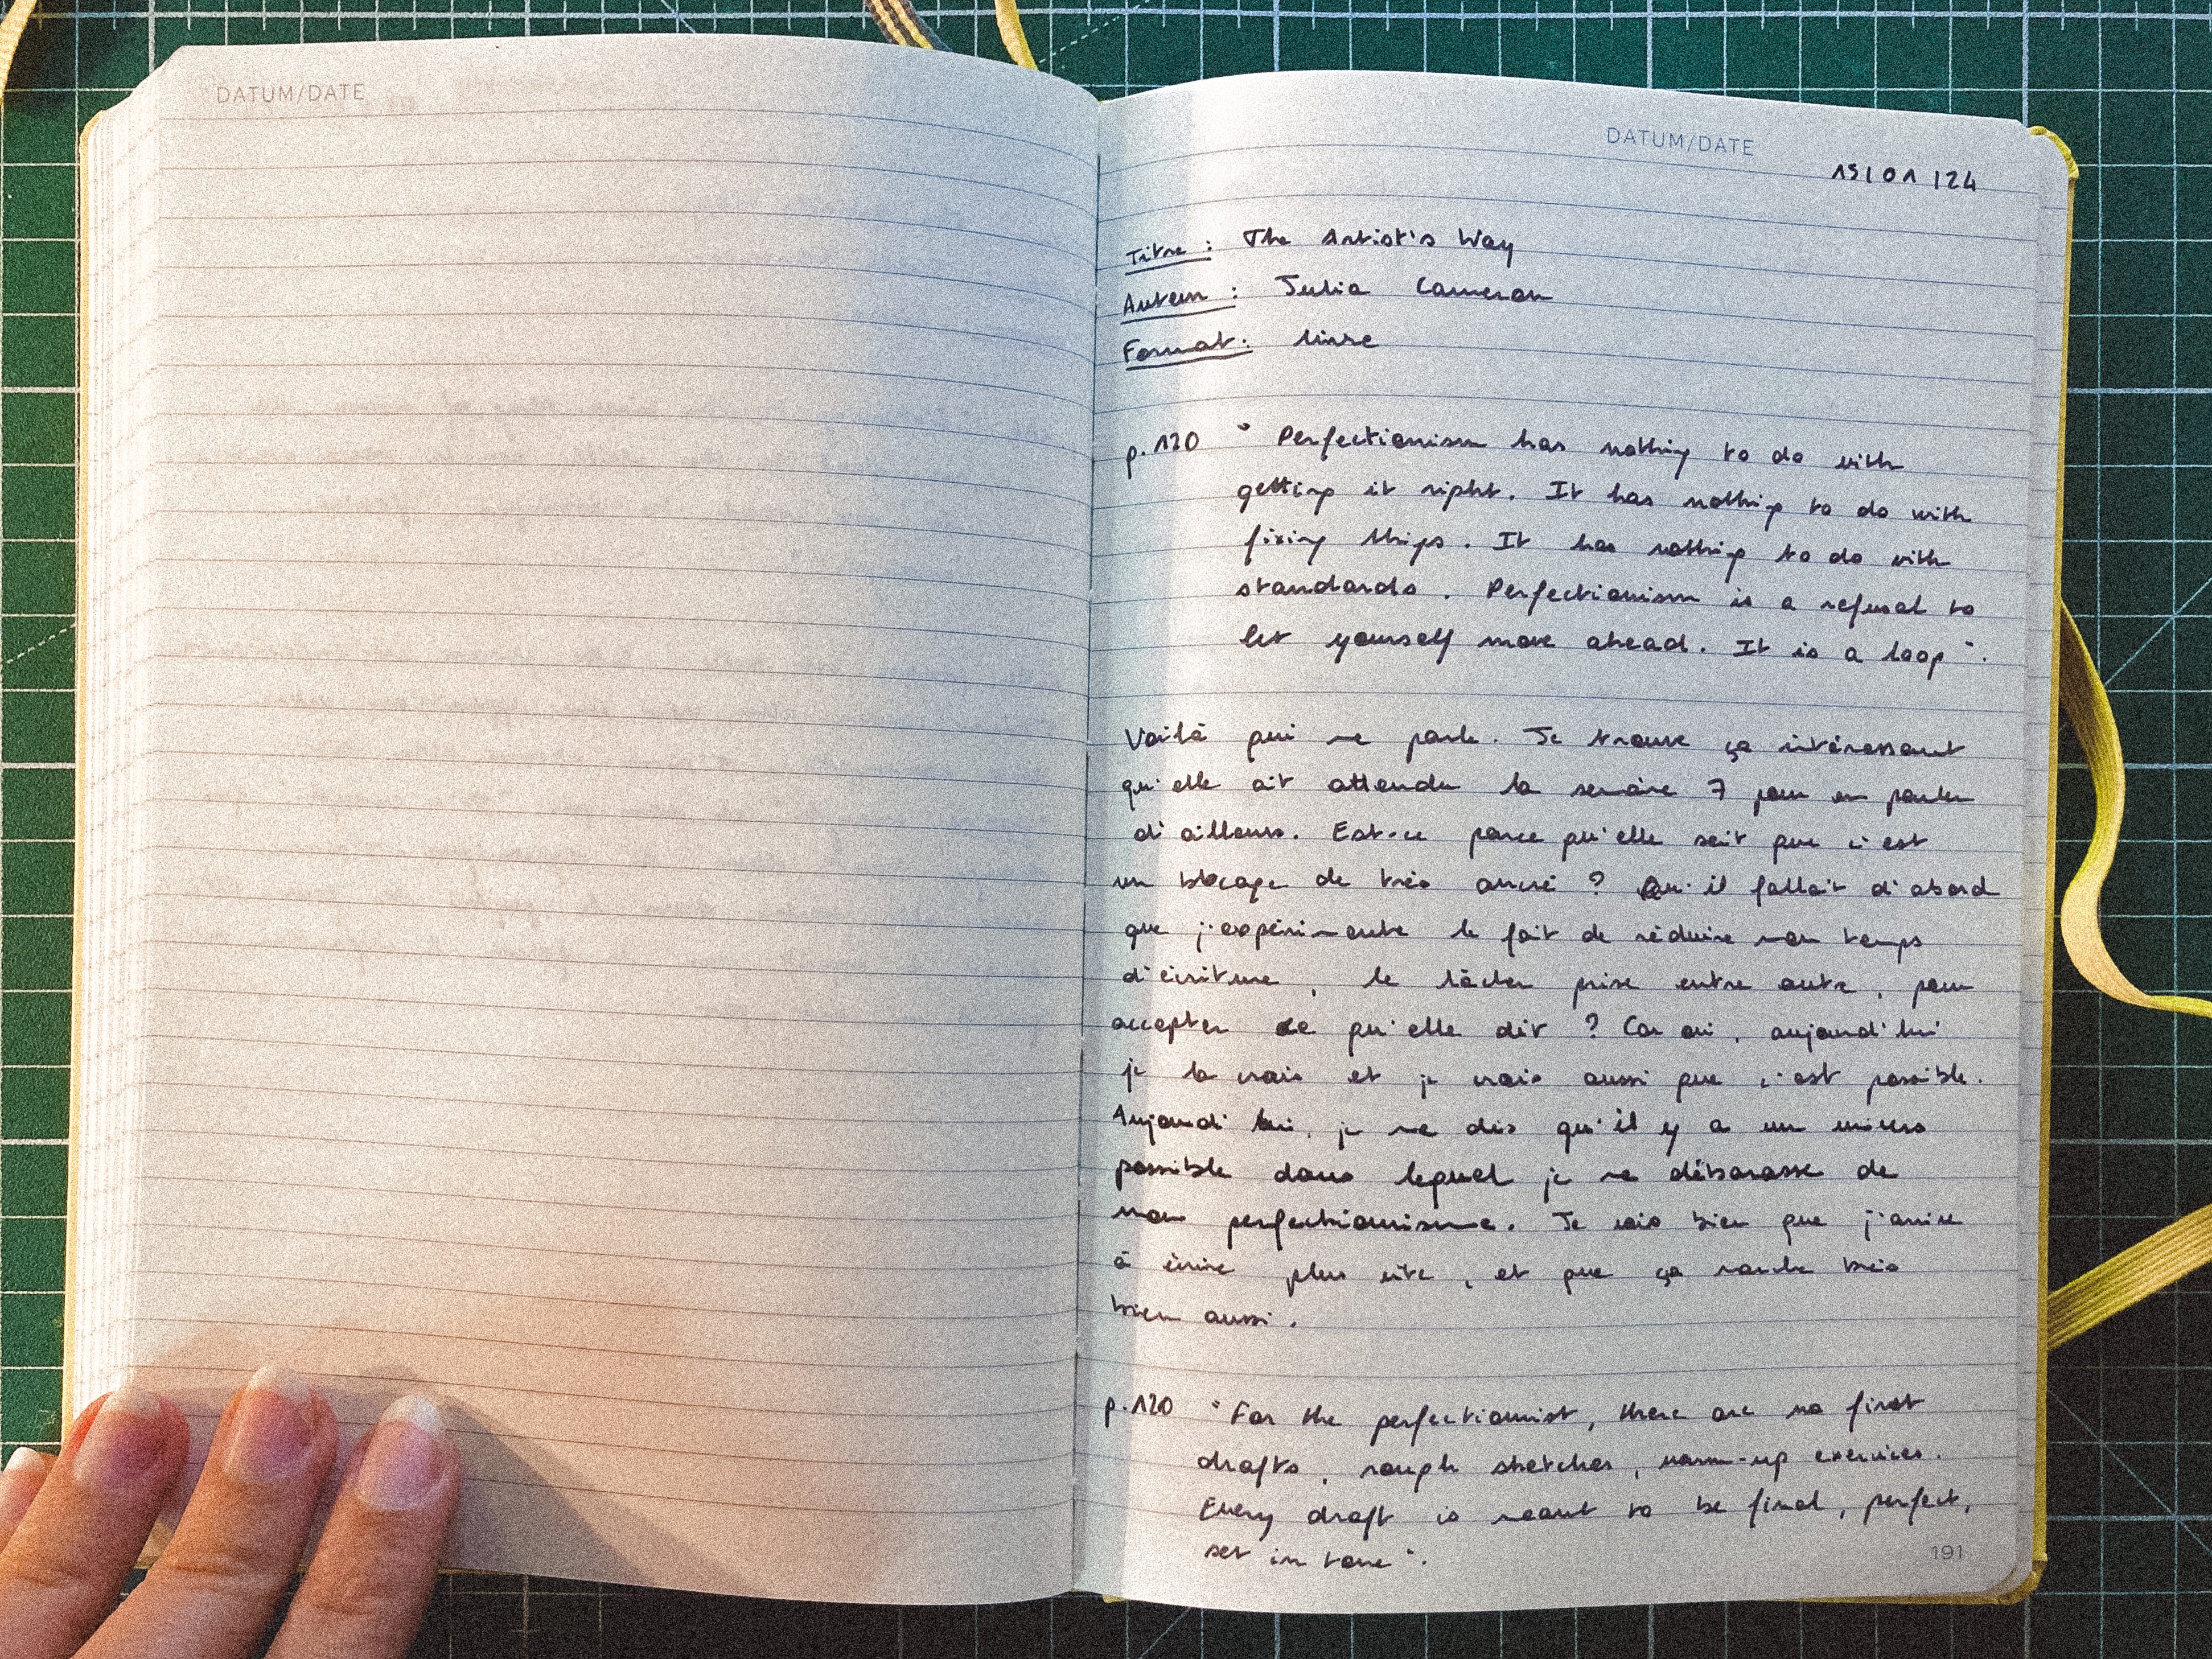 DATUM/DATE
DATUM/DATE
15/01/24
Titre : The Artist's Way
Auteur : Julia Cameron
Format : livre
p.120 " Perfectionism has nothing to do with
getting it right. It has nothing to do with
fixing things. It has nothing to do with
standards. Perfectionism is a refusal to
let yourself move ahead. It is a loop ".
Voilà qui me parle. Je trouve ça intéressant
qu'elle ait attendu la semaine 7 pour en parler
d'ailleurs. Est-ce parce qu'elle sait que c'est
un blocage de très ancré ? Qu'il fallait d'abord
que j'expérimente le fait de réduire mon temps
d'écriture, le lâcher prise entre autre, pour
accepter ce qu'elle dit ? Car oui, aujourd'hui
je la crois et je crois aussi que c'est possible.
Aujourd'hui, je me dis qu'il y a un univers
possible dans lequel je me débarasse de
mon perfectionnisme. Je vois bien que j'arrive
à écrire plus vite, et que ça marche très
bien aussi.
p.120 "For the perfectionist, there are no first
drafts, rough sketches, warm-up exercices.
Every draft is meant to be final, perfect,
set in tone ".
191